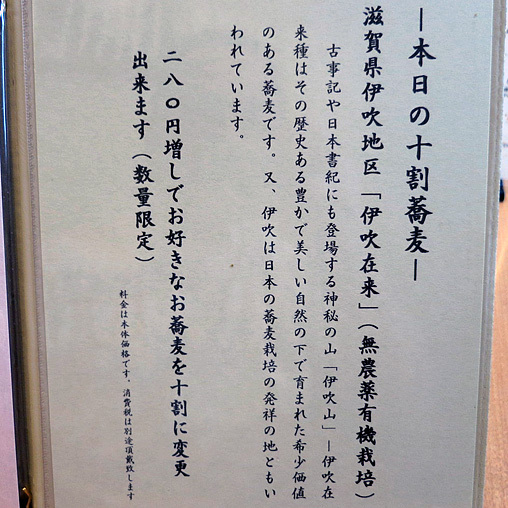 ―本日の十割蕎麦―
滋賀県伊吹地区「伊吹在来」（無農薬有機栽培）
古事記や日本書紀にも登場する神秘の山「伊吹山」―伊吹在
来種はその歴史ある豊かで美しい自然の下で育まれた希少価値
のある蕎麦です。又、伊吹は日本の蕎麦栽培の発祥の地ともい
われています。
二八〇円増しでお好きなお蕎麦を十割に変更
出来ます（数量限定）
料金は本体価格です。消費税は別途頂戴致します